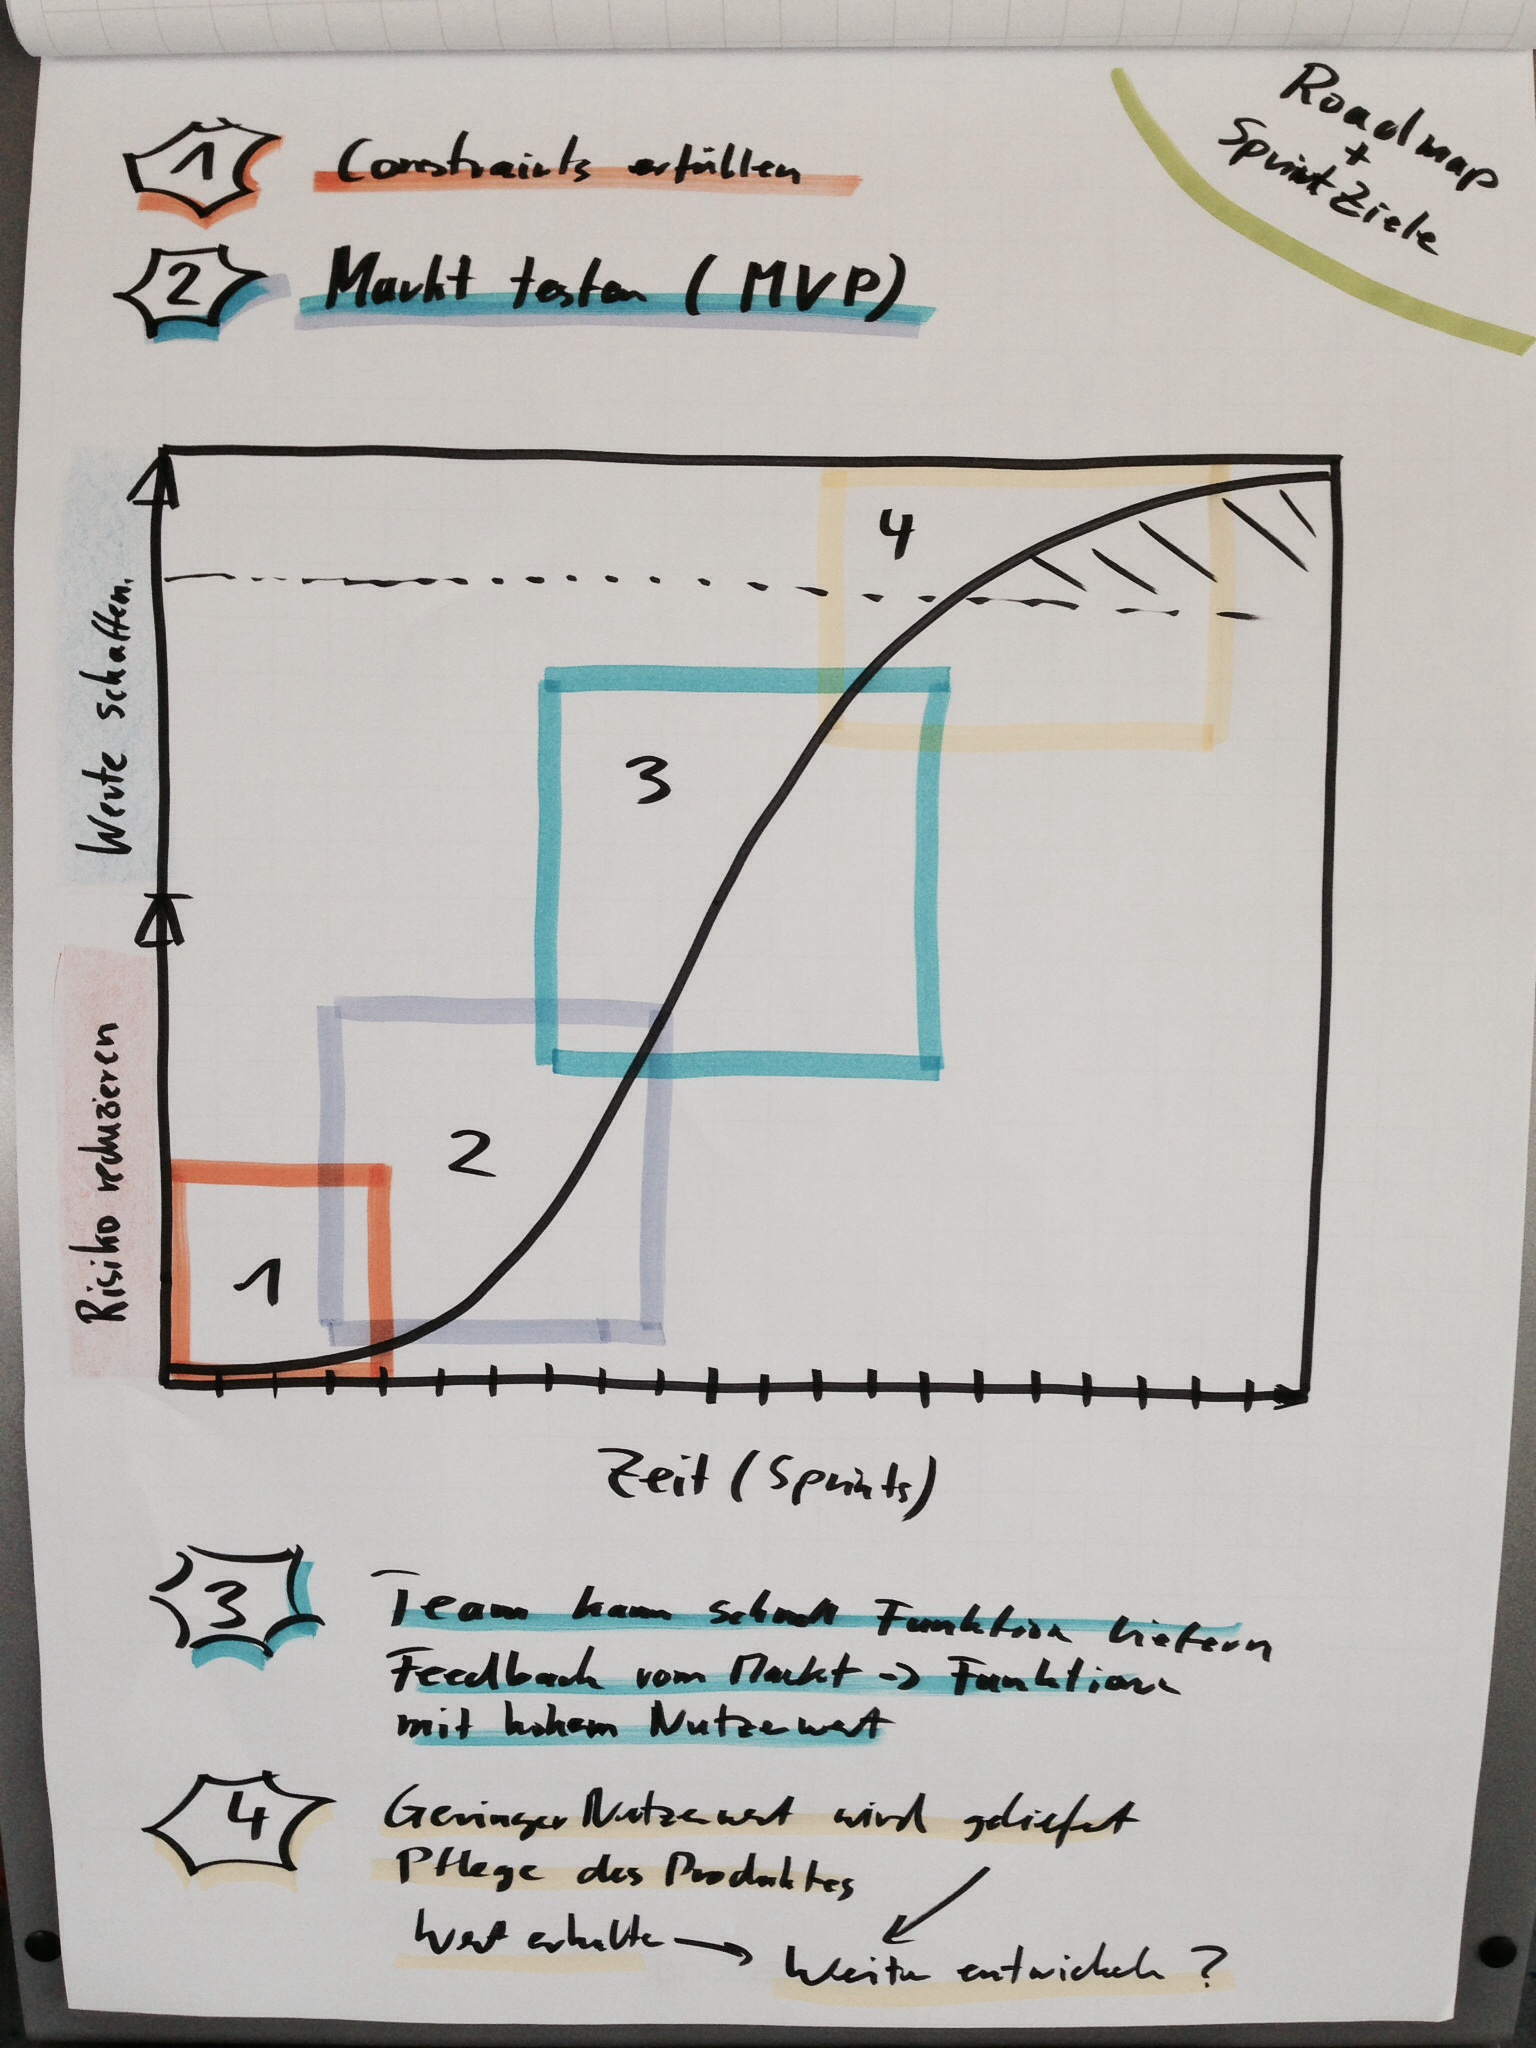 Roadmap
+
Sprint Ziele
1 Constraints erfüllen
2 Markt testen (MVP)
Werte schaffen.
Risiko reduzieren
4
3
2
1
Zeit (Sprints)
3 Team kann schnell Funktion liefern
Feedback vom Markt -> Funktionen
mit hohem Nutzenwert
4 Geringer Nutzenwert wird geliefert
Pflege des Produktes
Wert erhalten → Weiter entwickeln ?